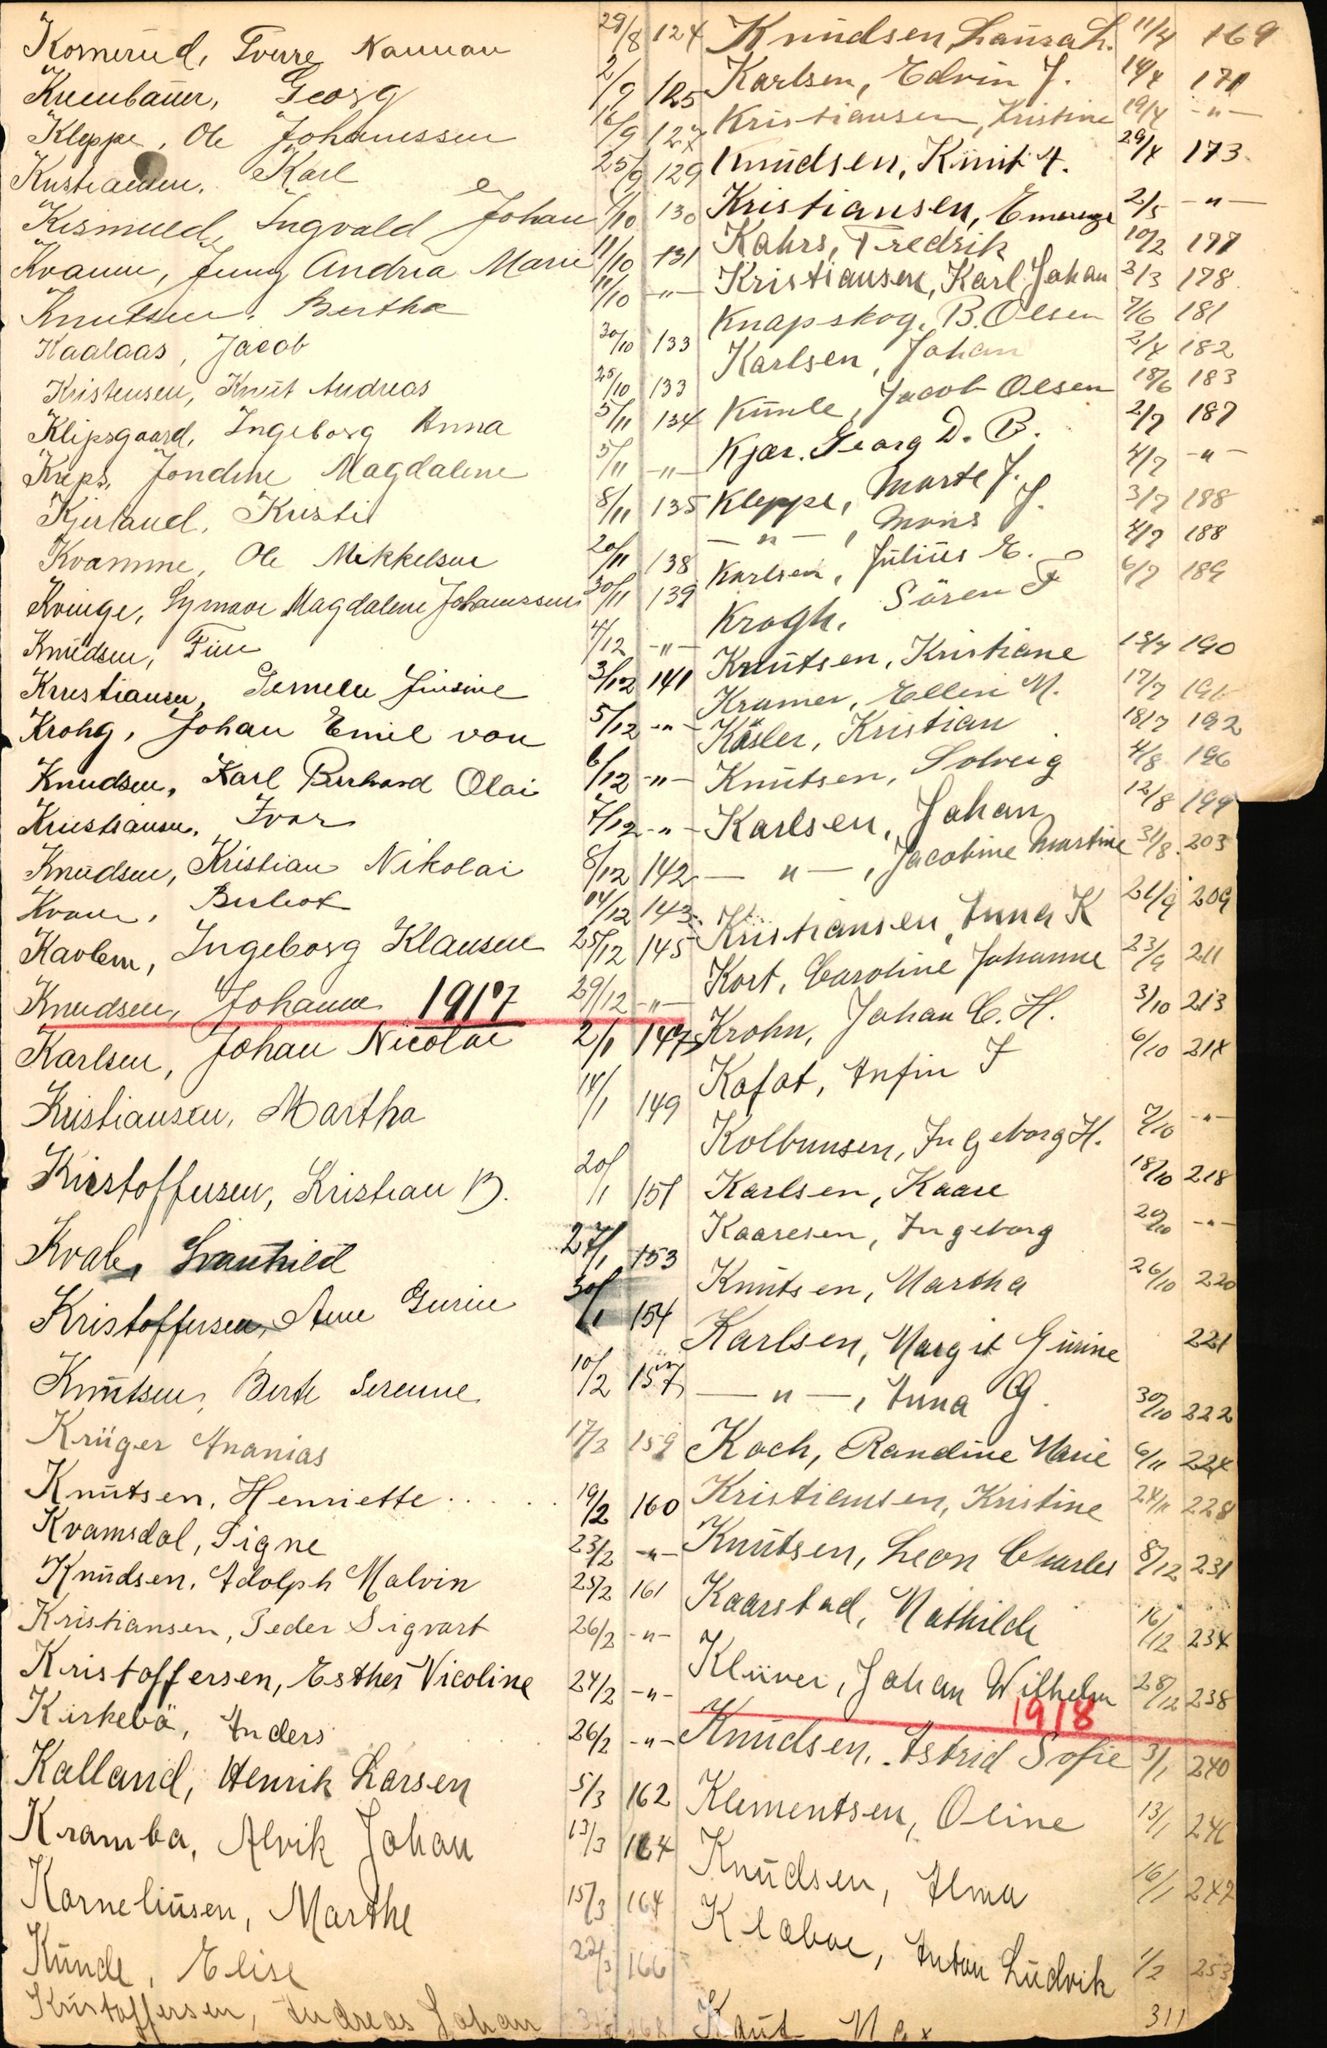 Komerud, Sverre Nauman 29/8 124
Kneubauer, Georg 2/9 125
Kleppe, Ole Johannssen 16/9 127
Kristiansen, Karl 25/9 129
Ingvald Johan /10 130
Kvamm, Jenny Andrea Marie 11/10 131
Knutsen, Bertha 11/10 -"-
Kaalaas, Jacob 30/10 133
Kristensen, Knut Andreas 25/10 133
Klipsgaard, Ingeborg Anna 5/11 134
Kreps, Jondine Magdalene 5/11 -"-
Kjerland, Kristi 8/11 135
Kvamme, Ole Mikkelsen 20/11 138
Kvinge, Synnøve Magdalene Johannssen 30/11 139
Knudsen, Finn 4/12 -"-
Kristiansen, Pernele Jensine 3/12 141
Krohg, Johan Emil von 5/12 -"-
Knudsen, Karl Berhard Olai 6/12 -"-
Kristiansen, Ivar 7/12 -"-
Knudsen, Kristian Nikolai 8/12 142
Kvam, 14/12 143
Ingeborg Klausen 25/12 145
Knudsen, Johanne 29/12 -"-
1917
Karlsen, Johan Nicolai 2/1 147
Kristiansen, Martha 14/1 149
Kristoffersen, Kristian B. 20/1 151
Kvale, Svanhild 27/1 153
Kristoffersen, Ane Gurine 30/1 154
Knutsen, Berte Serenne 10/2 157
Krüger Ananias 17/2 159
Knutsen, Henriette..... 19/2 160
Kvamsdal, Signe 23/2 -"-
Knudsen, Adolph Malvin 25/2 161
Kristiansen, Peder Sigvart 26/2 -"-
Kristoffersen, Esther Nicoline 24/2 -"-
Kirkebö, Anders 26/2 -"-
Kalland, Henrik Larsen 5/3 162
Kramba, Alvik Johan 13/3 164
Korneliusen, Marthe 15/3 164
Kunde, Elise 22/3 166
Kristoffersen, Andreas Johan 168
Knudsen, Laura L. 11/4 169
Karlsen, Edvin J. 14/4 171
Kristiansen, Kristine 19/4 -"-
Knudsen, Knut A. 29/4 173
Kristiansen, Emerenze 2/5 -"-
Kahrs, Fredrik 10/2 177
Kristiansen, Karl Johan 2/3 178
Knapskog, B. Olsen 7/6 181
Karlsen, Johan 2/4 182
Kunle, Jacob Olsen 18/6 183
Kjær, Georg D. B. 2/7 187
Kleppe, Marte J. 4/7 -"-
-"-, Mons J. 3/7 188
Karlsen, Julius E. 4/7 188
Krogh, Sören F 6/7 189
Knutsen, Kristiane 13/7 190
Kramer, Ellen M. 17/7 191
Käsler, Kristian 18/7 192
Knutsen, Solveig 4/8 196
Karlsen, Johan 12/8 199
-"-, Jacobine Martine 31/8 203
Kristiansen, Anna K 21/9 209
Kort, Caroline Johanne 23/9 211
Krohn, Johan C. H. 3/10 213
Kafat, Anfin J 6/10 214
Kolbunsen, Ingeborg H. 7/10 -"-
Karlsen, Kaare 18/10 218
Kaaresen, Ingeborg 20/10 -"-
Knutsen, Martha 26/10 220
Karlsen, Margit Gurine 221
-"-, Anna G. 30/10 222
Koch, Randine Marie 6/11 224
Kristiansen, Kristine 24/11 228
Knutsen, Leon Charles 8/12 231
Kaarstad, Mathilde 16/12 234
Klüver, Johan Wilhelm 28/12 238
1918
Knudsen, Astrid Sofie 3/1 240
Klementsen, Oline 13/1 246
Knudsen, Alma 16/1 247
Klaboe, Anton Ludvik 1/2 253
Knut Max 311